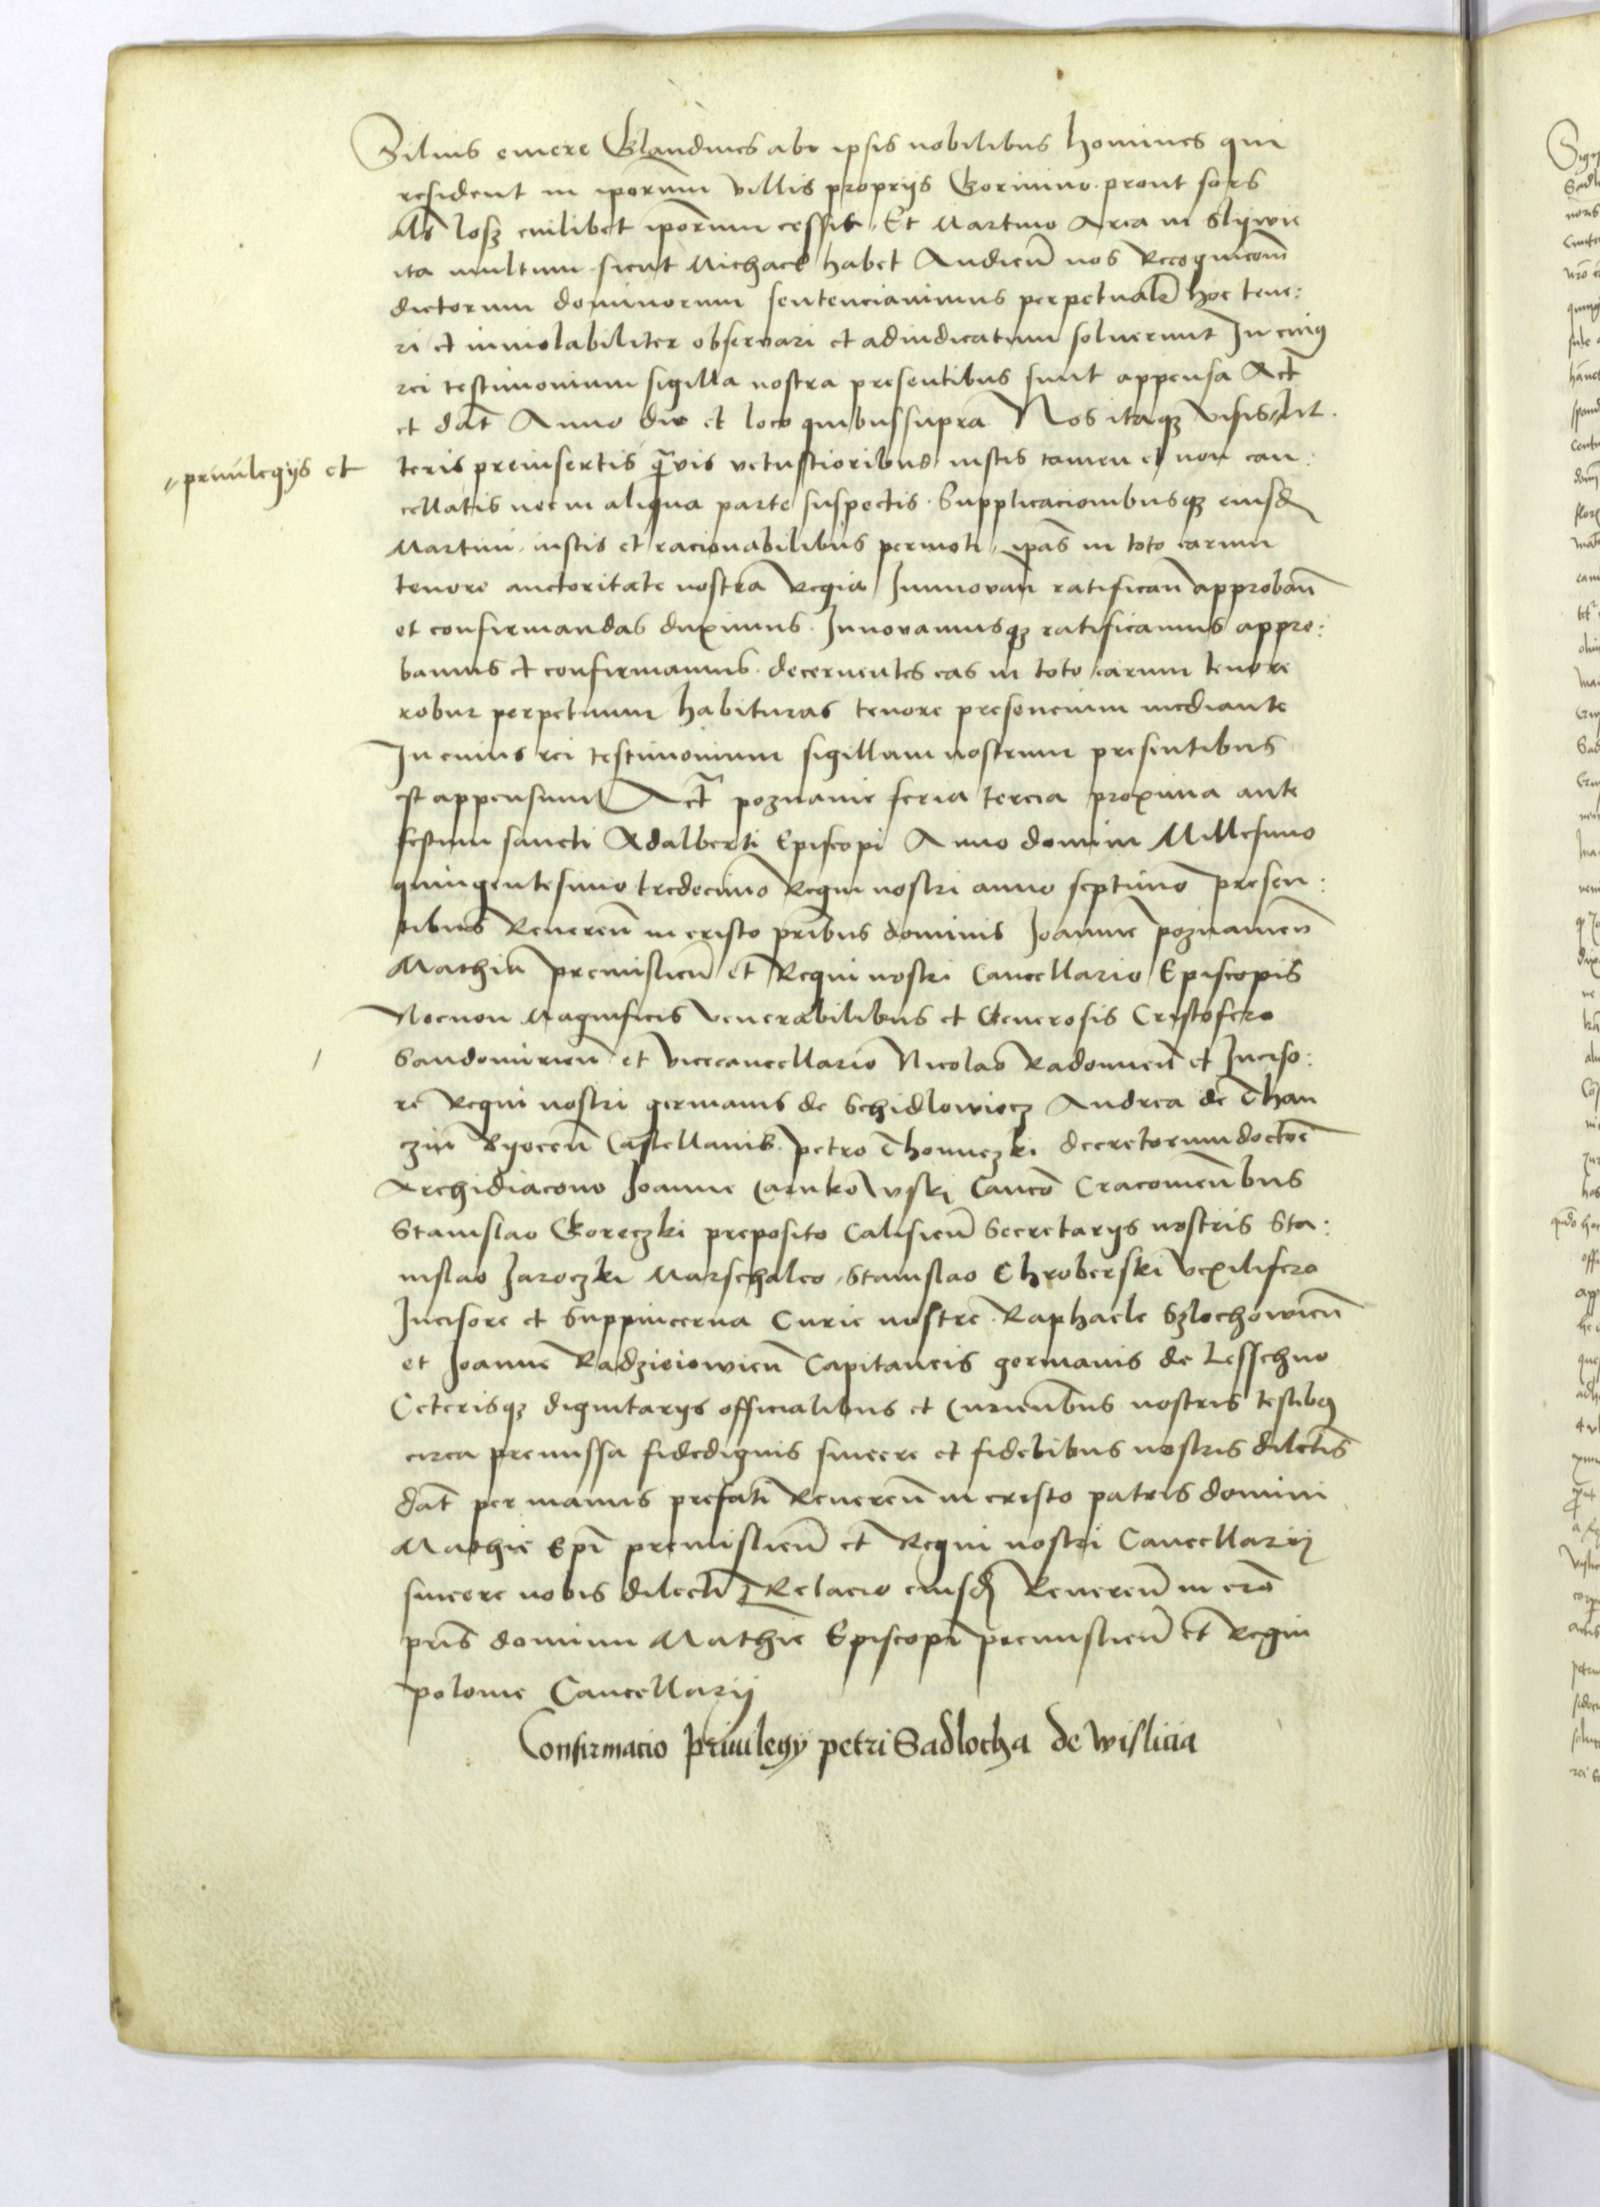 Silius emere Glandines abr ipsis nobilibus homines qui
resident in iporum villis proprijs Gorinino prout sors
als losz cuilibet iporum cessit Et Martino Area in Slijwie
ita multum sicut Michael habet Audien nos Recognicom
dictorum dominorum sentenciavimus perpetual hoc tene:
ri et inviolabiliter observari et adiudicatum soluerunt In cuiq
rei testimonium sigilla nostra presentibus sunt appensa Act
et dat Anno die et loco quibussupra Nos itaqz visis lit.
"privilegijs et
teris preinsertis qvis vetustioribus iustis tamen et non can:
cellatis nec in aliqua parte suspectis Supplicacionibusqz eiusd
Martini iustis et racionabilibus permoti ipas in toto earum
tenore auctoritate nostra Regia Innovan ratifican approban
et confirmandas duximus Innovamusqz ratificamus appro:
bamus et confirmamus decernentes eas in toto earum tenore
robur perpetuum habituras tenore presencium mediante
In cuius rei testimonium sigillum nostrum presentibus
est appensum Act poznanie feria tercia proxima ante
festum sancti Adalberti Episcopi Anno domini Millesimo
quingentesimo tredecimo Regni nostri anno septimo presen:
tibus Reveren in cristo pribus dominis Joanne poznanien
Mathia premislien et Regni nostri Cancellario Episcopis
Necnon Magnificis venerabilibus et Generosis Cristofero
Sandomirien et vicecancellario Nicolao Radomien et Inciso:
re Regni nostri germanis de Schidlowiecz Andrea de Than
czin Byecen Castellanis petro Thomiczki decretorum doctore
Archidiacono Joanne Carnkowski Canco Cracouienbus
Stanislao Goreczki preposito Calisien Secretarijs nostris Sta:
nislao Jaroczki Marschalco Stanislao Chroberski vexilifero
Incisore et Suppincerna Curie nostre Raphaele Szlochowien
et Joanne Radzieiowien Capitaneis germanis de Lesschno
Ceterisqz dignitarijs officialibus et Curienbus nostris testibq
circa premissa fidedignis sincere et fidelibus nostris dilectis
dat per manus prefati Reveren in cristo patris domini
Mathie Epi premislien et Regni nostri Cancellarij
sincere nobis dilecti Relacio eiusd Reveren in cro
pris domini Mathie Episcopi premislien et Regni
polonie Cancellarij
Confirmacio Privilegy petri Sadlocha de Wislicia